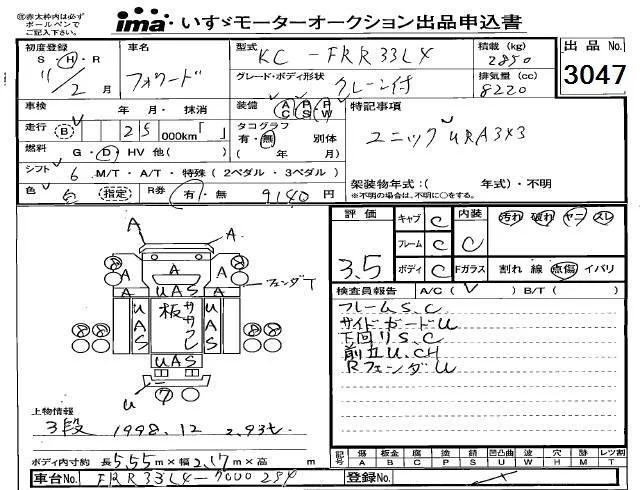 ※赤太枠内は必ず
ボールペンで
ご記入下さい。
ima・いすゞモーターオークション出品申込書
初度登録 S・H・R 11/2月
車名 フォワード
型式 KC-FRR33L4
グレード・ボディ形状 クレーン付
積載(kg) 2850
排気量(cc) 8220
出品No. 3047
車検 年 月・抹消
装備 AC PS PW
特記事項 ユニック URA343
走行 (B) 25 000km「 」
タコグラフ 有・無 別体
( 年 月)
燃料 G・D・HV 他( )
シフト 6 M/T・A/T・特殊(2ペダル・3ペダル)
架装物年式:( 年式)・不明
※不明の場合は、不明に○をする。
色 指定 R券 有・無 9140円
A A
A A A A
UAS
フェンダT
UAS 板 ササクレ UAS
UAS
U
評価 3.5
キャブ C 内装 C 汚れ 破れ ヤニ スレ
フレーム C
ボディ C Fガラス 割れ 線 点傷 イバリ
検査員報告 A/C( ) B/T( )
フレームS.C
サイドガードU
下回りS.C
前立U.CH
RフェンダU
上物情報
3段 1998.12 2.93t
ボディ内寸約 長5.55m×幅2.17m×高 m
記号 傷A 板金B 腐C 塗P 錆S 凹凸曲U 波W 穴H 跡M レツ割T
車台No. FRR33L4-7000284
登録No.